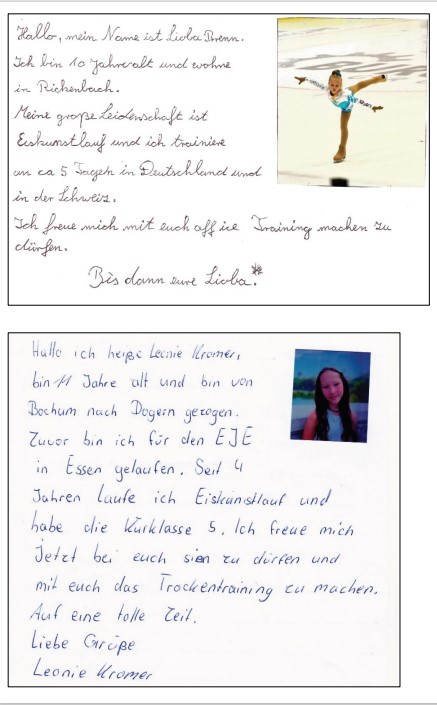 Hallo, mein Name ist Lioba Brenn.
Ich bin 10 Jahre alt und wohne
in Rickenbach.
Meine große Leidenschaft ist
Eiskunstlauf und ich trainiere
an ca 5 Tagen in Deutschland und
in der Schweiz.
Ich freue mich mit euch off ice Training machen zu
dürfen.
Bis dann eure Lioba.
Hallo ich heiße Leonie Kromer,
bin 11 Jahre alt und bin von
Bochum nach Dogern gezogen.
Zuvor bin ich für den EJE
in Essen gelaufen. Seit 4
Jahren laufe ich Eiskunstlauf und
habe die Kürklasse 5. Ich freue mich
Jetzt bei euch sien zu dürfen und
mit euch das Trockentraining zu machen.
Auf eine tolle Zeit.
Liebe Grüße
Leonie Kromer